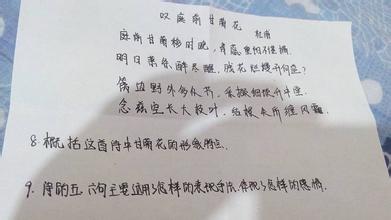 叹庭前甘菊花
杜甫
庭前甘菊移时晚，青蕊重阳不堪摘。
明日萧条醉尽醒，残花烂熳开何益？
篱边野外多众芳，采撷细琐升中堂。
念兹空长大枝叶，结根失所缠风霜。
8. 概括这首诗中甘菊花的形象特点。
9. 诗的五、六句主要运用了怎样的表现手法，体现了怎样的感情。